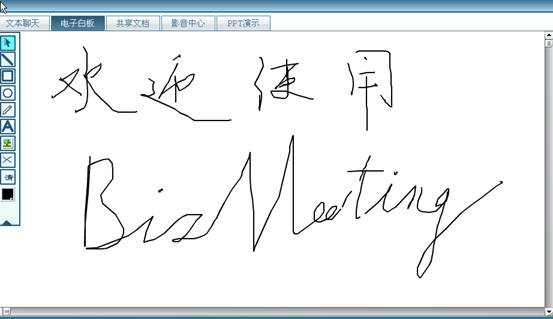 文本聊天 电子白板 共享文档 影音中心 PPT演示
欢迎 使用
BizMeeting
A